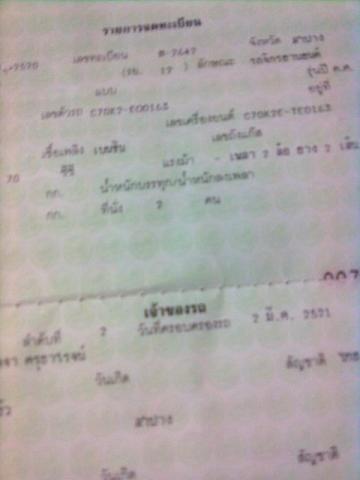 รายการจดทะเบียน
-2520 เลขทะเบียน -7647 จังหวัด ลำปาง
(รย. 12 ) ลักษณะ รถจักรยานยนต์
แบบ รุ่นปี ค.ศ.
เลขตัวรถ C70KZ-E00163 อยู่ที่
เลขเครื่องยนต์ C70KZE-TE0163
เชื้อเพลิง เบนซิน เลขถังแก๊ส
70 สูบ แรงม้า - เพลา 2 ล้อ ยาง 2 เส้น
กก. น้ำหนักบรรทุก/น้ำหนักลงเพลา
กก. ที่นั่ง 2 คน
007
เจ้าของรถ
ลำดับที่ 2 วันที่ครอบครองรถ 2 มี.ค. 2521
สัญชาติ ไทย
วันเกิด
ลำปาง
วันเกิด สัญชาติ